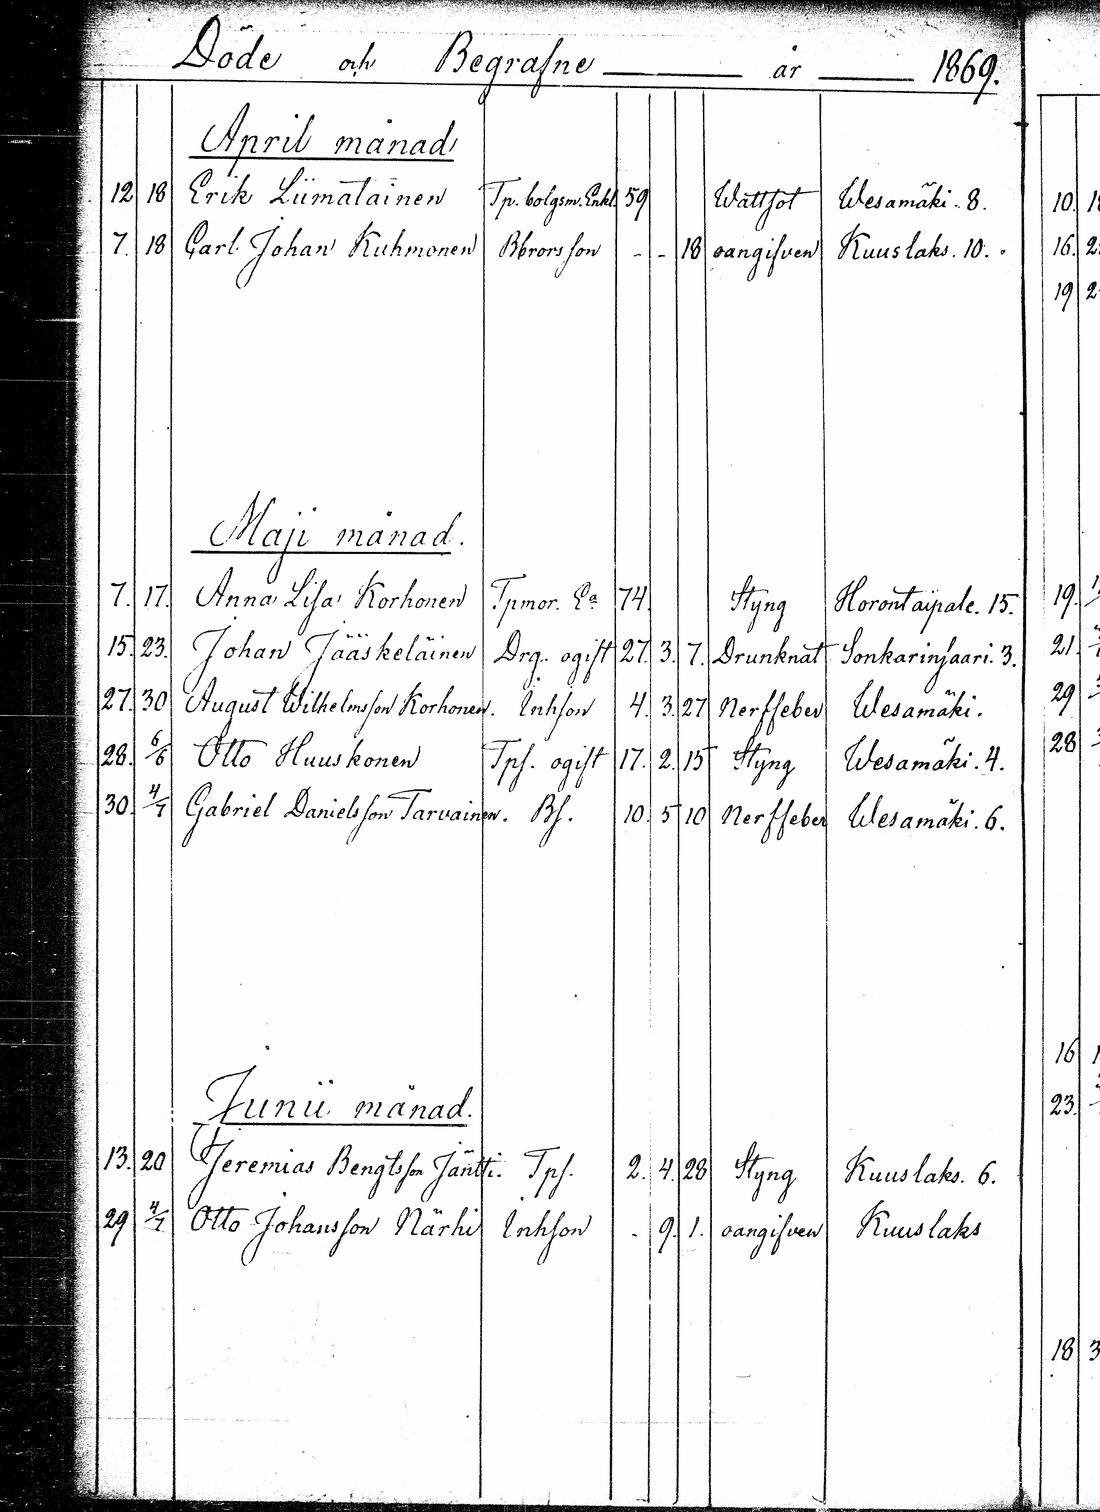 Döde och Begrafne år 1869.
April månad
12 18 Erik Liimatainen Tp. bolgsm. Enkl. 59 Wattsot Wesamäki. 8.
7. 18 Carl Johan Kuhmonen Bbrorsson - - 18 oangifven Kuuslaks. 10.
Maji månad.
7. 17. Anna Lisa Korhonen Tpmor. Ea 74. Styng Horontaipale. 15.
15. 23. Johan Jääskeläinen Drg. ogift 27. 3. 7. Drunknat Sonkarinsaari. 3.
27. 30 August Wilhelmsson Korhonen. Inhson 4. 3. 27 Nerffeber Wesamäki.
28. 6/6 Otto Huuskonen Tps. ogift 17. 2. 15 Styng Wesamäki. 4.
30. 4/7 Gabriel Danielsson Tarvainen. Bs. 10. 5 10 Nerffeber Wesamäki. 6.
Junii månad.
13. 20 Jeremias Bengtsson Jäntti. Tps. 2. 4. 28 Styng Kuuslaks. 6.
29 4/7 Otto Johansson Närhi Inhson - 9. 1. oangifven Kuuslaks
10.
16.
19
19.
21.
29
28
16
23.
18